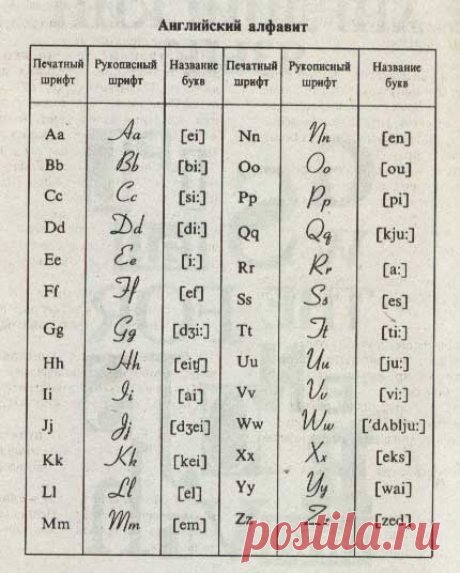 Английский алфавит
Печатный шрифт Рукописный шрифт Название букв Печатный шрифт Рукописный шрифт Название букв
Aa Aa [ei] Nn Nn [en]
Bb Bb [bi:] Oo Oo [ou]
Cc Cc [si:] Pp Pp [pi]
Dd Dd [di:] Qq Qq [kju:]
Ee Ee [i:] Rr Rr [a:]
Ff Ff [ef] Ss Ss [es]
Gg Gg [dʒi:] Tt Tt [ti:]
Hh Hh [eitʃ] Uu Uu [ju:]
Ii Ii [ai] Vv Vv [vi:]
Jj Jj [dʒei] Ww Ww ['dʌblju:]
Kk Kk [kei] Xx Xx [eks]
Ll Ll [el] Yy Yy [wai]
Mm Mm [em] Zz Zz [zed]
postila.ru